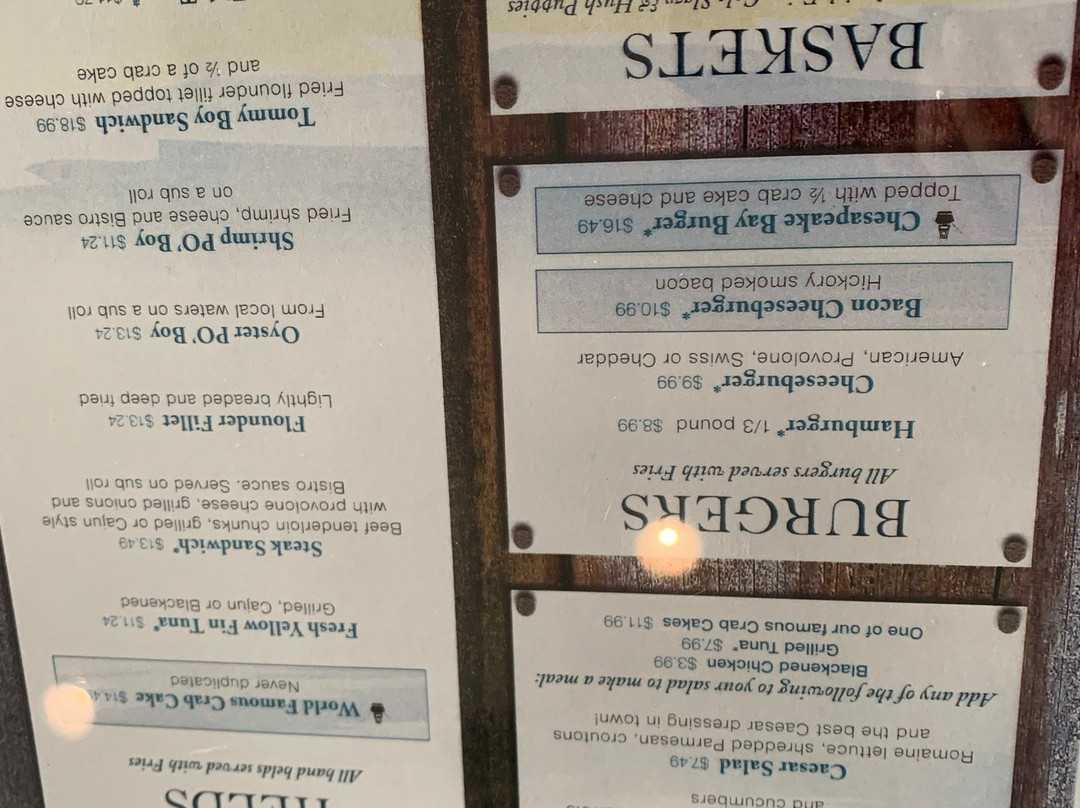 and cucumbers
Caesar Salad $7.49
Romaine lettuce, shredded Parmesan, croutons
and the best Caesar dressing in town!
Add any of the following to your salad to make a meal:
Blackened Chicken $3.99
Grilled Tuna* $7.99
One of our famous Crab Cakes $11.99
BURGERS
All burgers served with Fries
Hamburger* 1/3 pound $8.99
Cheeseburger* $9.99
American, Provolone, Swiss or Cheddar
Bacon Cheeseburger* $10.99
Hickory smoked bacon
Chesapeake Bay Burger* $16.49
Topped with ½ crab cake and cheese
BASKETS
Cole Slaw & Hush Puppies
HELDS
All hand helds served with Fries
World Famous Crab Cake
Never duplicated
Fresh Yellow Fin Tuna* $11.24
Grilled, Cajun or Blackened
Steak Sandwich* $13.49
Beef tenderloin chunks, grilled or Cajun style
with provolone cheese, grilled onions and
Bistro sauce. Served on sub roll
Flounder Fillet $13.24
Lightly breaded and deep fried
Oyster PO' Boy $13.24
From local waters on a sub roll
Shrimp PO' Boy $11.24
Fried shrimp, cheese and Bistro sauce
on a sub roll
Tommy Boy Sandwich $18.99
Fried flounder fillet topped with cheese
and ½ of a crab cake